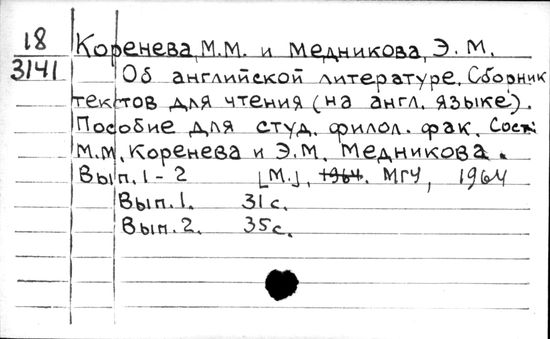 18 Коренева, М.М. и Медникова, Э.М.
3141 Об английской литературе. Сборник
текстов для чтения (на англ. языке).
Пособие для студ. филол. фак. Сост.
М.М. Коренева и Э.М. Медникова.
Вып. 1-2 [М.], 1964. МГУ, 1964
Вып. 1. 31 с.
Вып. 2. 35 с.